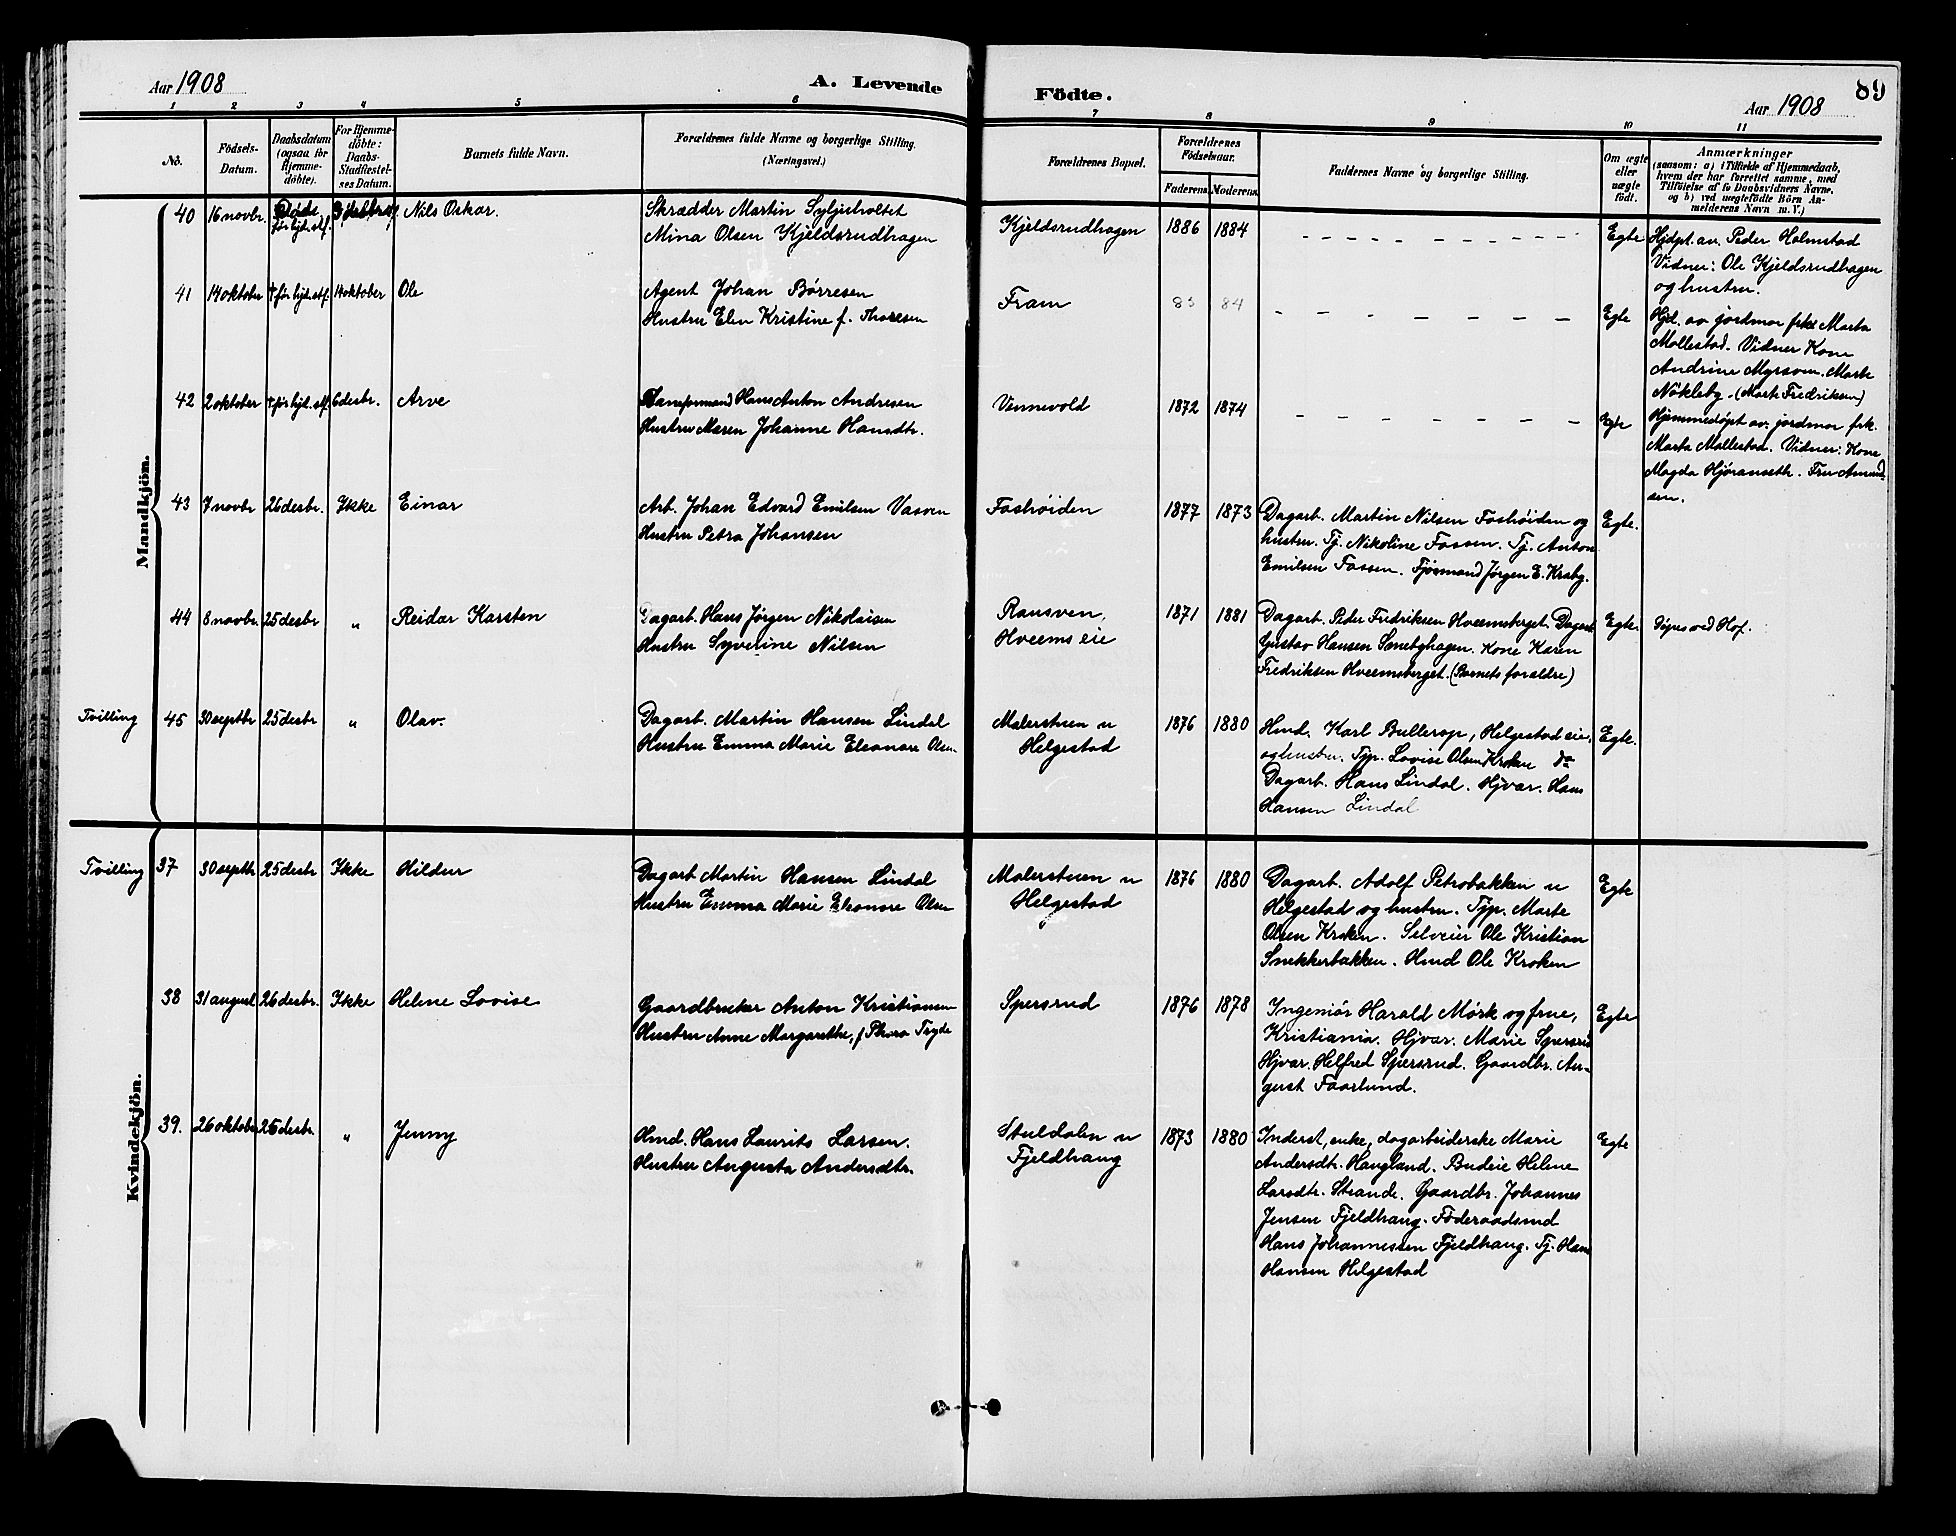 Aar 1908
A. Levende
Födte.
Aar 1908
89
1 2 3 4 5 6 7 8 9 10 11
No.
Födsels-
Datum.
Daabsdatum
(ogsaa for
Hjemme-
döbte).
For Hjemme-
döbte:
Daabs-
Stadfæstel-
ses Datum.
Barnets fulde Navn.
Forældrenes fulde Navne og borgerlige Stilling.
(Næringsvei.)
Forældrenes Bopæl.
Forældrenes
Födselsaar.
Faderens.
Moderens.
Faddernes Navne og borgerlige Stilling.
Om ægte
eller
uægte
födt.
Anmærkninger
(saasom: a) i Tilfælde af Hjemmedaab,
hvem der har forrettet samme, med
Tilföielse af to Daabsvidners Navne,
og b) ved uægtefödte Börn An-
melderens Navn m. V.)
Mandkjön.
40
16 novbr.
Døde
før kjd. stf.
Nils Oskar.
Skrædder Martin Syljuholtet
Mina Olsen Kjeldsrudhagen
Kjeldsrudhagen
1886
1884
Egte
Hjdpt. av. Peder Holmstad
Vidner: Ole Kjeldsrudhagen
og hustru.
41
14 oktober
† før kjd. stf.
14 oktober
Ole
Agent Johan Børresen
Hustru Elen Kristine f. Thoresen
Fram
83
84
Egte
Hjd. av jordmor frk. Marta
Mollestad. Vidner Kone
Andrine Myrsven. Marte
Nökleby. (Marte Fredriksen)
42
2 oktober
† før kjd. stf.
6 desbr.
Arve
Hans Anton Andresen
Hustru Maren Johanne Hansdtr.
Vennevold
1872
1874
Egte
Hjemmedøpt av jordmor frk.
Marta Mollestad. Vidner: Kone
Magda Hjøranseth. Fru Amund-
sen.
43
7 novbr
26 desbr.
Ikke
Einar
Arb. Johan Edvard Emilsen Vasven
Hustru Petra Johansen
Foshöiden
1877
1873
Dagarb. Martin Nilsen Foshöiden og
hustru. Tj. Nikoline Fossen. Tj. Anton
Emilsen Fossen. Fjösmand Jørgen E. Kraby.
Egte.
44
8 novbr.
25 desbr
"
Reidar Karsten
Dagarb. Hans Jørgen Nikolaisen
Hustru Syverine Nilsen
Ransven,
Hveems eie
1871
1881
Dagarb. Peder Fredriksen Hveemsberget. Dagarb.
Gustav Hansen Smebyhagen. Kone Karen
Fredriksen Hveemsberget. (Barnets forældre)
Egte.
Døpes ved Hof.
Tvilling
45
30 septbr
25 desbr
"
Olav.
Dagarb. Martin Hansen Lindal
Hustru Emma Marie Eleonore Olsen
Malerstuen u
Helgestad
1876
1880
Hmd. Karl Bullerop, Helgestad eie,
og hustru. Tjp. Lovise Olsen Kroken do
Dagarb. Hans Lindal. Hjvar. Hans
Hansen Lindal
Egte.
Kvindekjön.
Tvilling
37
30 septbr
25 desbr
Ikke
Hildur
Dagarb Martin Hansen Lindal
Hustru Emma Marie Eleonore Olsen
Malerstuen u
Helgestad
1876
1880
Dagarb. Adolf Petrobakken u
Helgestad og hustru. Tjp. Marte
Olsen Kroken. Selveier Ole Kristian
Snekkerbakken. Hmd Ole Kroken
Egte
38
31 august
26 desbr.
Ikke
Helene Lovise
Gaardbruker Anton Kristiansen
Hustru Anne Margarethe, f. Thora Tryde
Spersrud
1876
1878
Ingeniør Harald Mørk og frue,
Kristiania. Hjvar. Marie Spersrud
Hjvar. Helfred Spersrud. Gaardbr. Au-
gust Faarlund.
Egte
39.
26 oktober
26 desbr.
"
Jenny
Hmd. Hans Laurits Larsen.
Hustru Augusta Andersdtr.
Stuldalen u
Fjeldhaug
1873
1880
Inderst, enke, dagarbeiderske Marie
Andersdtr. Haugland. Budeie Helene
Larsdtr. Strande. Gaardbr. Johannes
Jensen Fjeldhaug. Föderaadsmd
Hans Johannessen Fjeldhaug. Tj. Hans
Hansen Helgestad
Egte